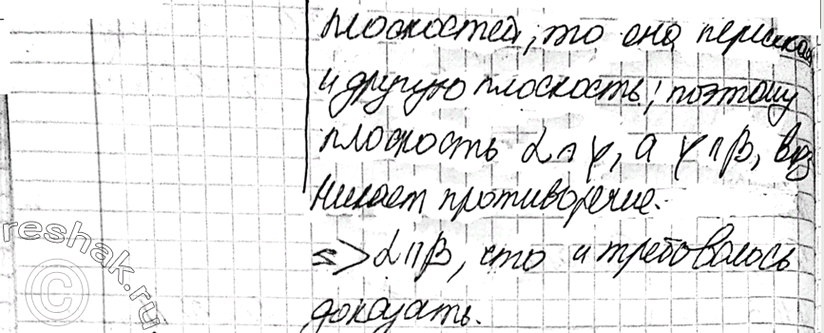 плоскостей, то она пересекает
и другую плоскость; поэтому
плоскость α∩γ, а γ∩β, воз
никает противоречие.
=> α∩β, что и требовалось
доказать.
reshak.ru
©